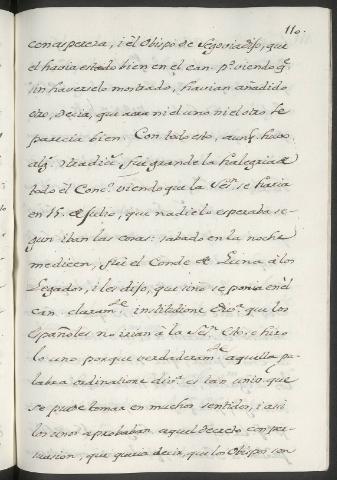 110.
con aspereza, i el Obispo de Segovia dijo, que
el havia estado bien en el can. pº viendo q.
sin haverselo mostrado, havian añadido
otro, decia, que aora ni el uno ni el otro le
parecia bien. Con todo esto, aunq. huvo
alg. contradicⁿ, fue grande la halegria de
todo el Concº viendo que la Sesⁿ se haria
en 15. de Julio, que nadie lo esperaba se-
gun iban las cosas: sabado en la noche
me dicen, fue el Conde de Luna à los
Legados, i les dijo, que sino se ponia en el
can. claramte institutione divª que los
Españoles no irian à la Sesⁿ. Esto se hizo
lo uno porque verdaderamte aquella pa-
labra ordinatione divª es tan unic. que
se puede tomar en muchos sentidos, i asi
los unos aprobaban aquel decreto con per-
suasion, que queria decir, que los Obispos son